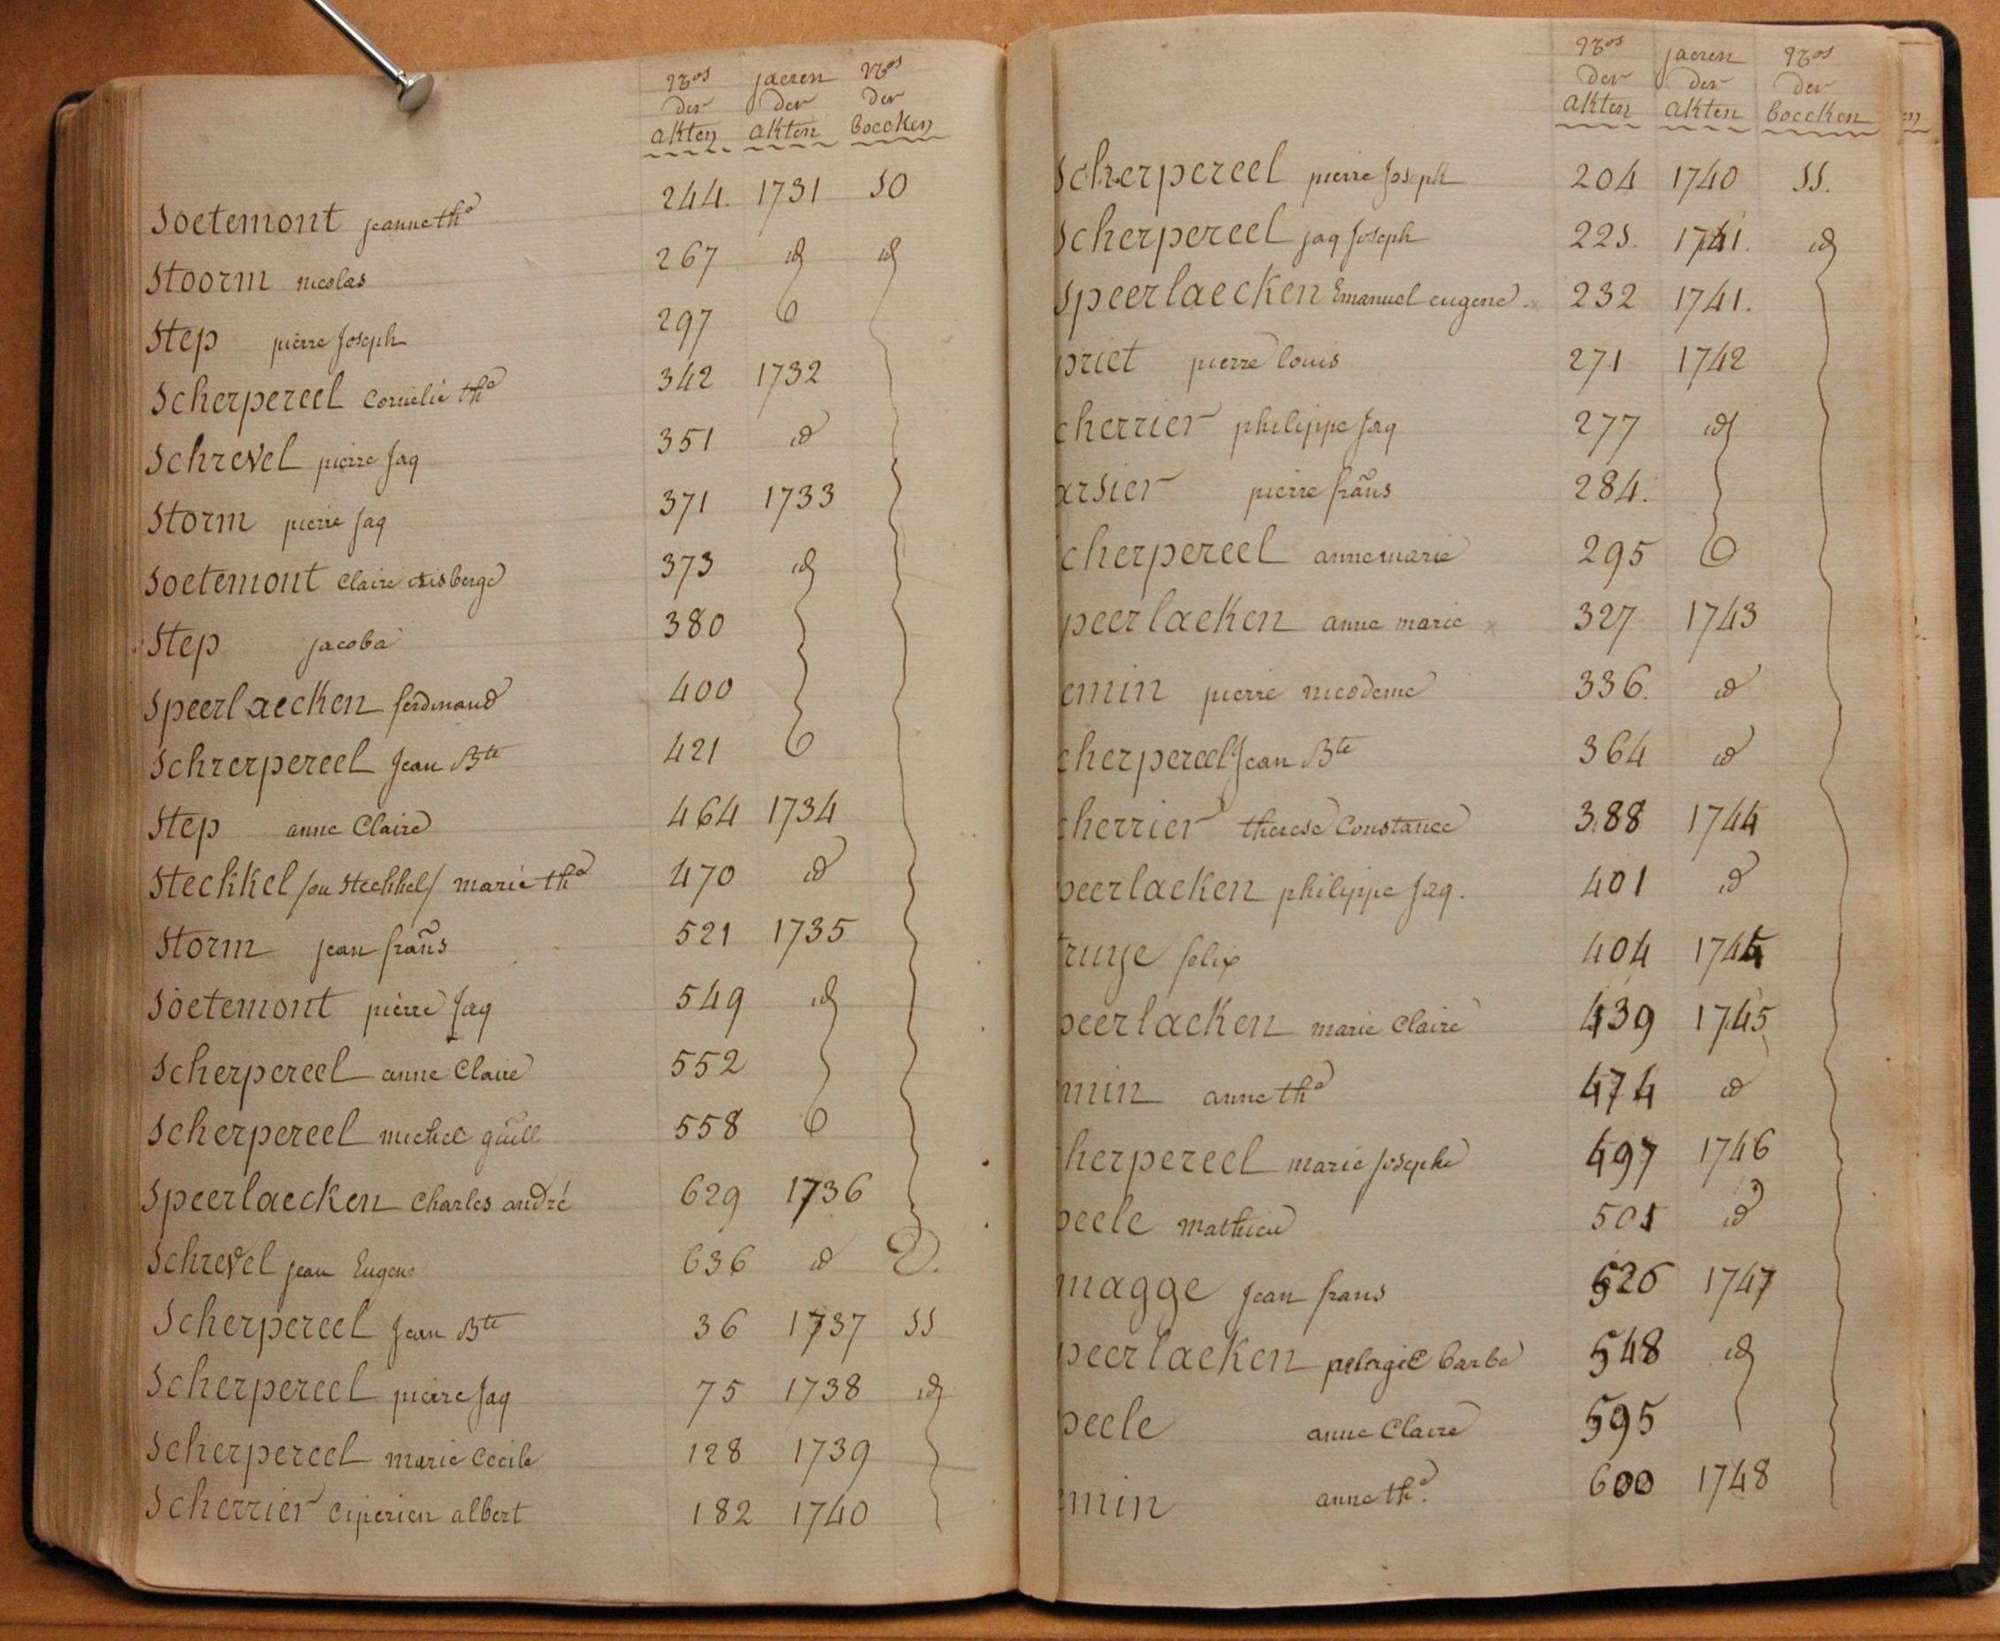 Nros jaeren Nros
der der der
akten akten boecken
Soetemont jeanne the 244. 1731 50
Stoorm nicolas 267 id id
Step pierre Joseph 297
Scherpereel Cornelie the 342 1732
Schrevel pierre Jaq 351 id
Storm pierre Jaq 371 1733
Soetemont Claire 373 id
Step jacoba 380
Speerlaecken ferdinand 400
Schrerpereel Jean Bte 421
Step anne Claire 464 1734
Steckkel /ou Stechhel/ marie the 470 id
Storm jean frañs 521 1735
Soetemont pierre Jaq 549 id
Scherpereel anne Claire 552
Scherpereel michel guill 558
Speerlaecken Charles andré 629 1736
Schrevel jean Eugene 636 id
Scherpereel Jean Bte 36 1737 55
Scherpereel pierre Jaq 75 1738 id
Scherpereel marie Cecile 128 1739
Scherrier Ciperien albert 182 1740
Nros jaeren Nros
der der der
akten akten boecken
Scherpereel pierre Joseph 204 1740 55.
Scherpereel jaq Joseph 225. 1741. id
Speerlaecken Emanuel eugene 232 1741.
priet pierre louis 271 1742
cherrier philippe Jaq 277 id
arsier pierre frañs 284.
cherpereel anne marie 295
peerlaeken anne marie x 327 1743
emin pierre nicodeme 336. id
cherpereel Jean Bte 364 id
cherrier therese Constance 388 1744
peerlaeken philippe Jaq. 401 id
ruye felix 404 1745
peerlaeken marie Claire 439 1745
min anne the 474 id
herpereel marie Josephe 497 1746
peele mathieu 505 id
magge Jean frans 526 1747
peerlaeken pelagie barbe 548 id
peele anne Claire 595
min anne the. 600 1748